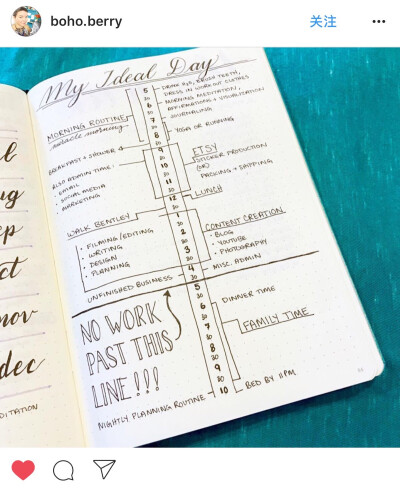 boho.berry
关注
My Ideal Day
5
30
6
30
7
30
8
30
9
30
10
30
11
30
12
30
1
30
2
30
3
30
4
30
5
30
6
30
7
30
8
30
9
30
10
DRESS IN WORKOUT CLOTHES
MORNING MEDITATION,
AFFIRMATIONS + VISUALIZATION
JOURNALING
MORNING ROUTINE
miracle morning
YOGA OR RUNNING
BREAKFAST + SHOWER
ALSO ADMIN TIME:
• EMAIL
• SOCIAL MEDIA
• MARKETING
ETSY
STICKER PRODUCTION
(OR)
PACKING + SHIPPING
LUNCH
WALK BENTLEY
• FILMING/EDITING
• WRITING
• DESIGN
• PLANNING
CONTENT CREATION
• BLOG
• YOUTUBE
• PHOTOGRAPHY
MISC. ADMIN
UNFINISHED BUSINESS
NO WORK
PAST THIS
LINE!!!
DINNER TIME
FAMILY TIME
NIGHTLY PLANNING ROUTINE
BED BY 11PM
ug
ep
ct
nov
dec
DITATION